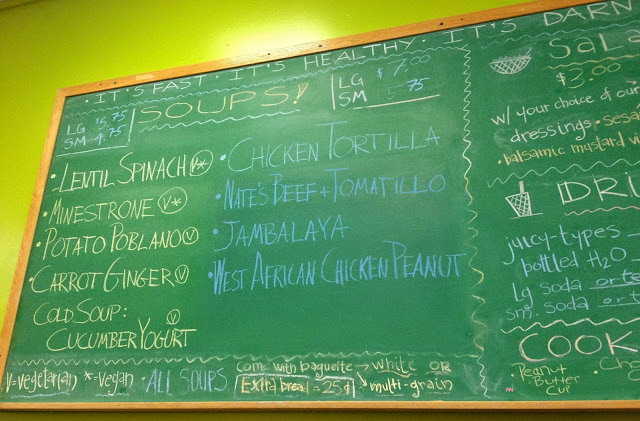 · IT'S FAST · IT'S HEALTHY · IT'S DARN
SOUPS!
LG $5.75
SM 4.75
LG $7.00
SM 5.75
· LENTIL SPINACH V*
· MINESTRONE V*
· POTATO POBLANO V
· CARROT GINGER V
COLD SOUP: V
CUCUMBER YOGURT
· CHICKEN TORTILLA
· NATE'S BEEF + TOMATILLO
· JAMBALAYA
· WEST AFRICAN CHICKEN PEANUT
V=vegetarian *=vegan · ALL SOUPS come with baguette → white OR
Extra bread = 25¢ → multi-grain
$3.00
w/ your choice of our
dressings · 
· balsamic mustard
juicy-types
bottled H2O
Lg soda
sm. soda
COOK
· Peanut
Butter
Cup